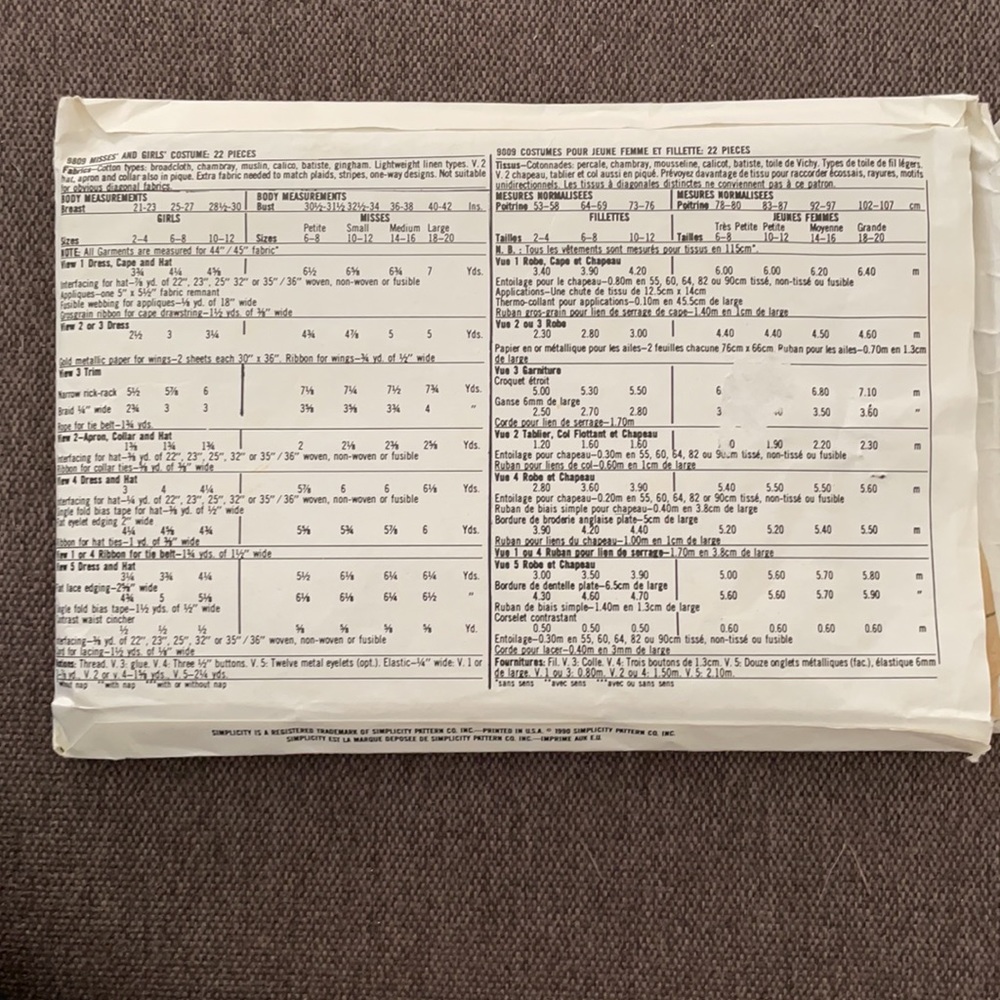 9809 MISSES' AND GIRLS' COSTUME: 22 PIECES
Fabrics—Cotton types: broadcloth, chambray, muslin, calico, batiste, gingham. Lightweight linen types. V. 2
hat, apron and collar also in pique. Extra fabric needed to match plaids, stripes, one-way designs. Not suitable
for obvious diagonal fabrics.
BODY MEASUREMENTS BODY MEASUREMENTS
Breast 21-23 25-27 28½-30 Bust 30½-31½ 32½-34 36-38 40-42 Ins.
GIRLS MISSES
Petite Small Medium Large
Sizes 2-4 6-8 10-12 Sizes 6-8 10-12 14-16 18-20
NOTE: All Garments are measured for 44"/45" fabric*
View 1 Dress, Cape and Hat
3¾ 4¼ 4⅝ 6½ 6⅝ 6¾ 7 Yds.
Interfacing for hat-⅞ yd. of 22", 23", 25" 32" or 35"/36" woven, non-woven or fusible
Appliques-one 5" x 5½" fabric remnant
Fusible webbing for appliques-⅛ yd. of 18" wide
Grosgrain ribbon for cape drawstring-1½ yds. of ⅜" wide
View 2 or 3 Dress
2½ 3 3¼ 4¾ 4⅞ 5 5 Yds.
Gold metallic paper for wings-2 sheets each 30" x 36". Ribbon for wings-¾ yd. of ½" wide
View 3 Trim
Narrow rick-rack 5½ 5⅞ 6 7⅛ 7¼ 7½ 7¾ Yds.
Braid ¼" wide 2¾ 3 3 3⅜ 3⅜ 3¾ 4 "
Rope for tie belt-1¾ yds.
View 2-Apron, Collar and Hat
1⅜ 1¾ 1¾ 2 2⅛ 2⅜ 2⅝ Yds.
Interfacing for hat-⅜ yd. of 22", 23", 25", 32" or 35"/36" woven, non-woven or fusible
Ribbon for collar ties-⅝ yd. of ⅜" wide
View 4 Dress and Hat
3 4 4¼ 5⅞ 6 6 6⅛ Yds.
Interfacing for hat-¼ yd. of 22", 23", 25", 32" or 35"/36" woven, non-woven or fusible
Single fold bias tape for hat-⅜ yd. of ½" wide
Flat eyelet edging 2" wide
4¼ 4⅝ 4¾ 5⅝ 5¾ 5⅞ 6 Yds.
Ribbon for hat ties-1 yd. of ⅜" wide
View 1 or 4 Ribbon for tie belt-1¾ yds. of 1½" wide
View 5 Dress and Hat
3¼ 3¾ 4¼ 5½ 6⅛ 6¼ 6¼ Yds.
Flat lace edging-2⅝" wide
4¾ 5 5⅛ 6⅛ 6⅛ 6¼ 6½ "
Single fold bias tape-1½ yds. of ½" wide
Contrast waist cincher
½ ½ ½ ⅝ ⅝ ⅝ ⅝ Yd.
Interfacing-⅜ yd. of 22", 23", 25", 32" or 35"/36" woven, non-woven or fusible
Cord for lacing-1½ yds. of ⅛" wide
Notions: Thread. V. 3: glue. V. 4: Three ½" buttons. V. 5: Twelve metal eyelets (opt.). Elastic-¼" wide: V. 1 or
yd., V. 2 or v. 4-1⅝ yds., V. 5-2¼ yds.
nap **with nap ***with or without nap
9009 COSTUMES POUR JEUNE FEMME ET FILLETTE: 22 PIECES
Tissus—Cotonnades: percale, chambray, mousseline, calicot, batiste, toile de Vichy. Types de toile de fil légers.
V. 2 chapeau, tablier et col aussi en piqué. Prévoyez davantage de tissu pour raccorder écossais, rayures, motifs
unidirectionnels. Les tissus à diagonales distinctes ne conviennent pas à ce patron.
MESURES NORMALISEES MESURES NORMALISEES
Poitrine 53-58 64-69 73-76 Poitrine 78-80 83-87 92-97 102-107 cm
FILLETTES JEUNES FEMMES
Très Petite Petite Moyenne Grande
Tailles 2-4 6-8 10-12 Tailles 6-8 10-12 14-16 18-20
N. B. : Tous les vêtements sont mesurés pour tissus en 115cm*.
Vue 1 Robe, Cape et Chapeau
3.40 3.90 4.20 6.00 6.00 6.20 6.40 m
Entoilage pour le chapeau-0.80m en 55, 60, 64, 82 ou 90cm tissé, non-tissé ou fusible
Applications-Une chute de tissu de 12.5cm x 14cm
Thermo-collant pour applications-0.10m en 45.5cm de large
Ruban gros-grain pour lien de serrage de cape-1.40m en 1cm de large
Vue 2 ou 3 Robe
2.30 2.80 3.00 4.40 4.40 4.50 4.60 m
Papier en or métallique pour les ailes-2 feuilles chacune 76cm x 66cm. Ruban pour les ailes-0.70m en 1.3cm
de large
Vue 3 Garniture
Croquet étroit
5.00 5.30 5.50 6 6.80 7.10 m
Ganse 6mm de large
2.50 2.70 2.80 3 3.50 3.60 "
Corde pour lien de serrage-1.70m
Vue 2 Tablier, Col Flottant et Chapeau
1.20 1.60 1.60 0 1.90 2.20 2.30 m
Entoilage pour chapeau-0.30m en 55, 60, 64, 82 ou tissé, non-tissé ou fusible
Ruban pour liens de col-0.60m en 1cm de large
Vue 4 Robe et Chapeau
2.80 3.60 3.90 5.40 5.50 5.50 5.60 m
Entoilage pour chapeau-0.20m en 55, 60, 64, 82 or 90cm tissé, non-tissé ou fusible
Ruban de biais simple pour chapeau-0.40m en 3.8cm de large
Bordure de broderie anglaise plate-5cm de large
3.90 4.20 4.40 5.20 5.20 5.40 5.50 m
Ruban pour liens du chapeau-1.00m en 1cm de large
Vue 1 ou 4 Ruban pour lien de serrage-1.70m en 3.8cm de large
Vue 5 Robe et Chapeau
3.00 3.50 3.90 5.00 5.60 5.70 5.80 m
Bordure de dentelle plate-6.5cm de large
4.30 4.60 4.70 5.60 5.60 5.70 5.90 "
Ruban de biais simple-1.40m en 1.3cm de large
Corselet contrastant
0.50 0.50 0.50 0.60 0.60 0.60 0.60 m
Entoilage-0.30m en 55, 60, 64, 82 ou 90cm tissé, non-tissé ou fusible
Corde pour lacer-0.40m en 3mm de large
Fournitures: Fil. V. 3: Colle. V. 4: Trois boutons de 1.3cm. V. 5: Douze onglets métalliques (fac.), élastique 6mm
de large. V. 1 ou 3: 0.80m. V. 2 ou 4: 1.50m. V. 5: 2.10m.
*sans sens **avec sens ***avec ou sans sens
SIMPLICITY IS A REGISTERED TRADEMARK OF SIMPLICITY PATTERN CO. INC.—PRINTED IN U.S.A. © 1990 SIMPLICITY PATTERN CO. INC.
SIMPLICITY EST LA MARQUE DEPOSEE DE SIMPLICITY PATTERN CO. INC.—IMPRIME AUX E.U.